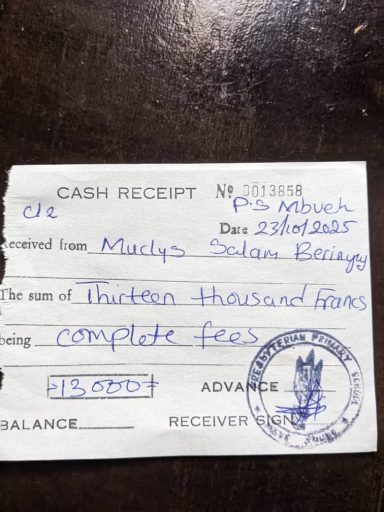 CASH RECEIPT Nº 0013858
cl2 P.S Mbveh
Date 23/10/2025
Received from Muclys Salam
The sum of Thirteen thousand Francs
being complete fees
13000 ADVANCE
BALANCE RECEIVER SIGN
PRESBYTERIAN PRIMARY SCHOOL